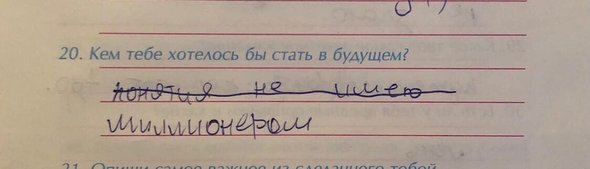 20. Кем тебе хотелось бы стать в будущем?
понятия не имею
миллионером
21. Опиши самое важное из сделанного тобой